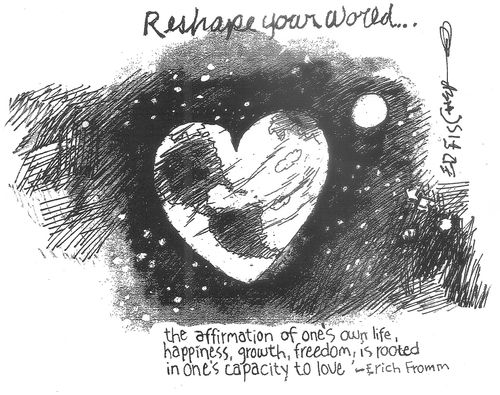 Reshape your World...
ED FISCHER
the affirmation of one's own life,
happiness, growth, freedom, is rooted
in one's capacity to love '—Erich Fromm